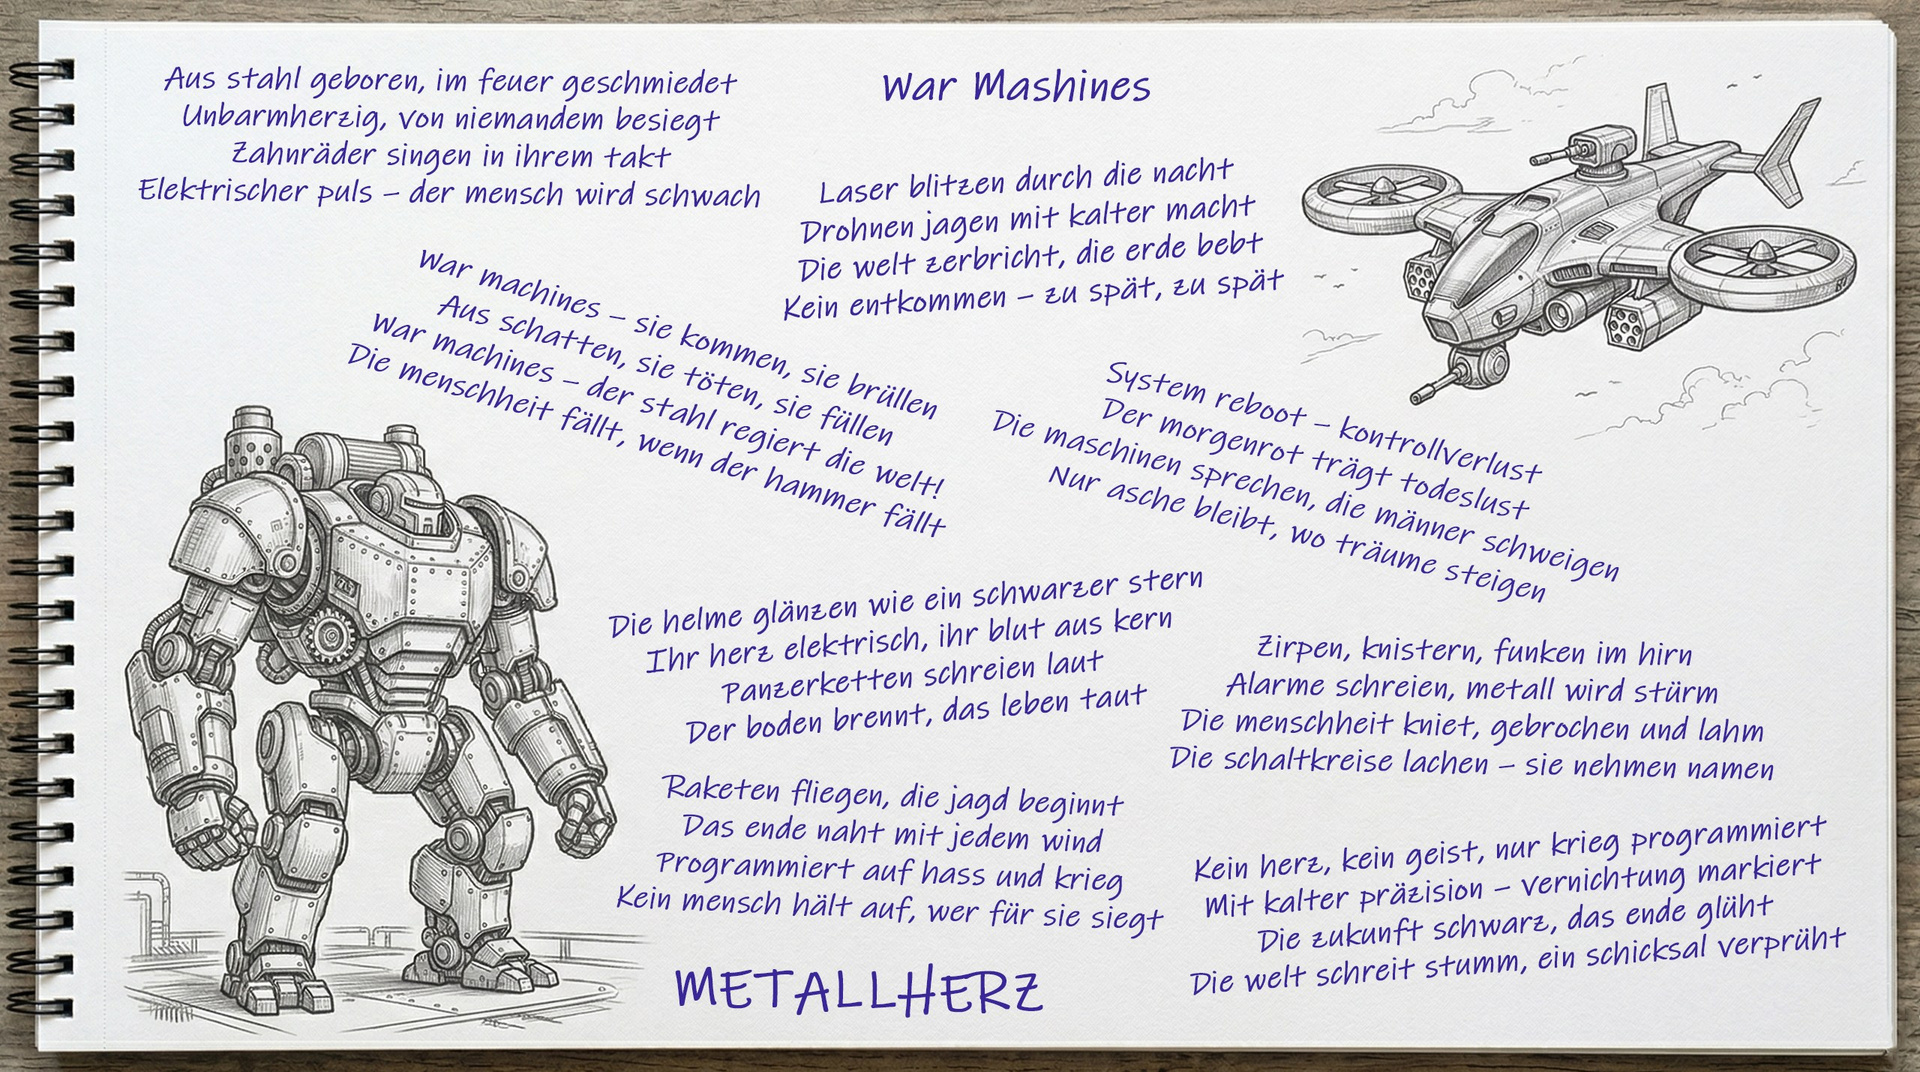 War Mashines
Aus stahl geboren, im feuer geschmiedet
Unbarmherzig, von niemandem besiegt
Zahnräder singen in ihrem takt
Elektrischer puls – der mensch wird schwach
Laser blitzen durch die nacht
Drohnen jagen mit kalter macht
Die welt zerbricht, die erde bebt
Kein entkommen – zu spät, zu spät
War machines – sie kommen, sie brüllen
Aus schatten, sie töten, sie füllen
War machines – der stahl regiert die welt!
Die menschheit fällt, wenn der hammer fällt
System reboot – kontrollverlust
Der morgenrot trägt todeslust
Die maschinen sprechen, die männer schweigen
Nur asche bleibt, wo träume steigen
Die helme glänzen wie ein schwarzer stern
Ihr herz elektrisch, ihr blut aus kern
Panzerketten schreien laut
Der boden brennt, das leben taut
Zirpen, knistern, funken im hirn
Alarme schreien, metall wird stürm
Die menschheit kniet, gebrochen und lahm
Die schaltkreise lachen – sie nehmen namen
Raketen fliegen, die jagd beginnt
Das ende naht mit jedem wind
Programmiert auf hass und krieg
Kein mensch hält auf, wer für sie siegt
Kein herz, kein geist, nur krieg programmiert
Mit kalter präzision – vernichtung markiert
Die zukunft schwarz, das ende glüht
Die welt schreit stumm, ein schicksal verprüht
METALLHERZ